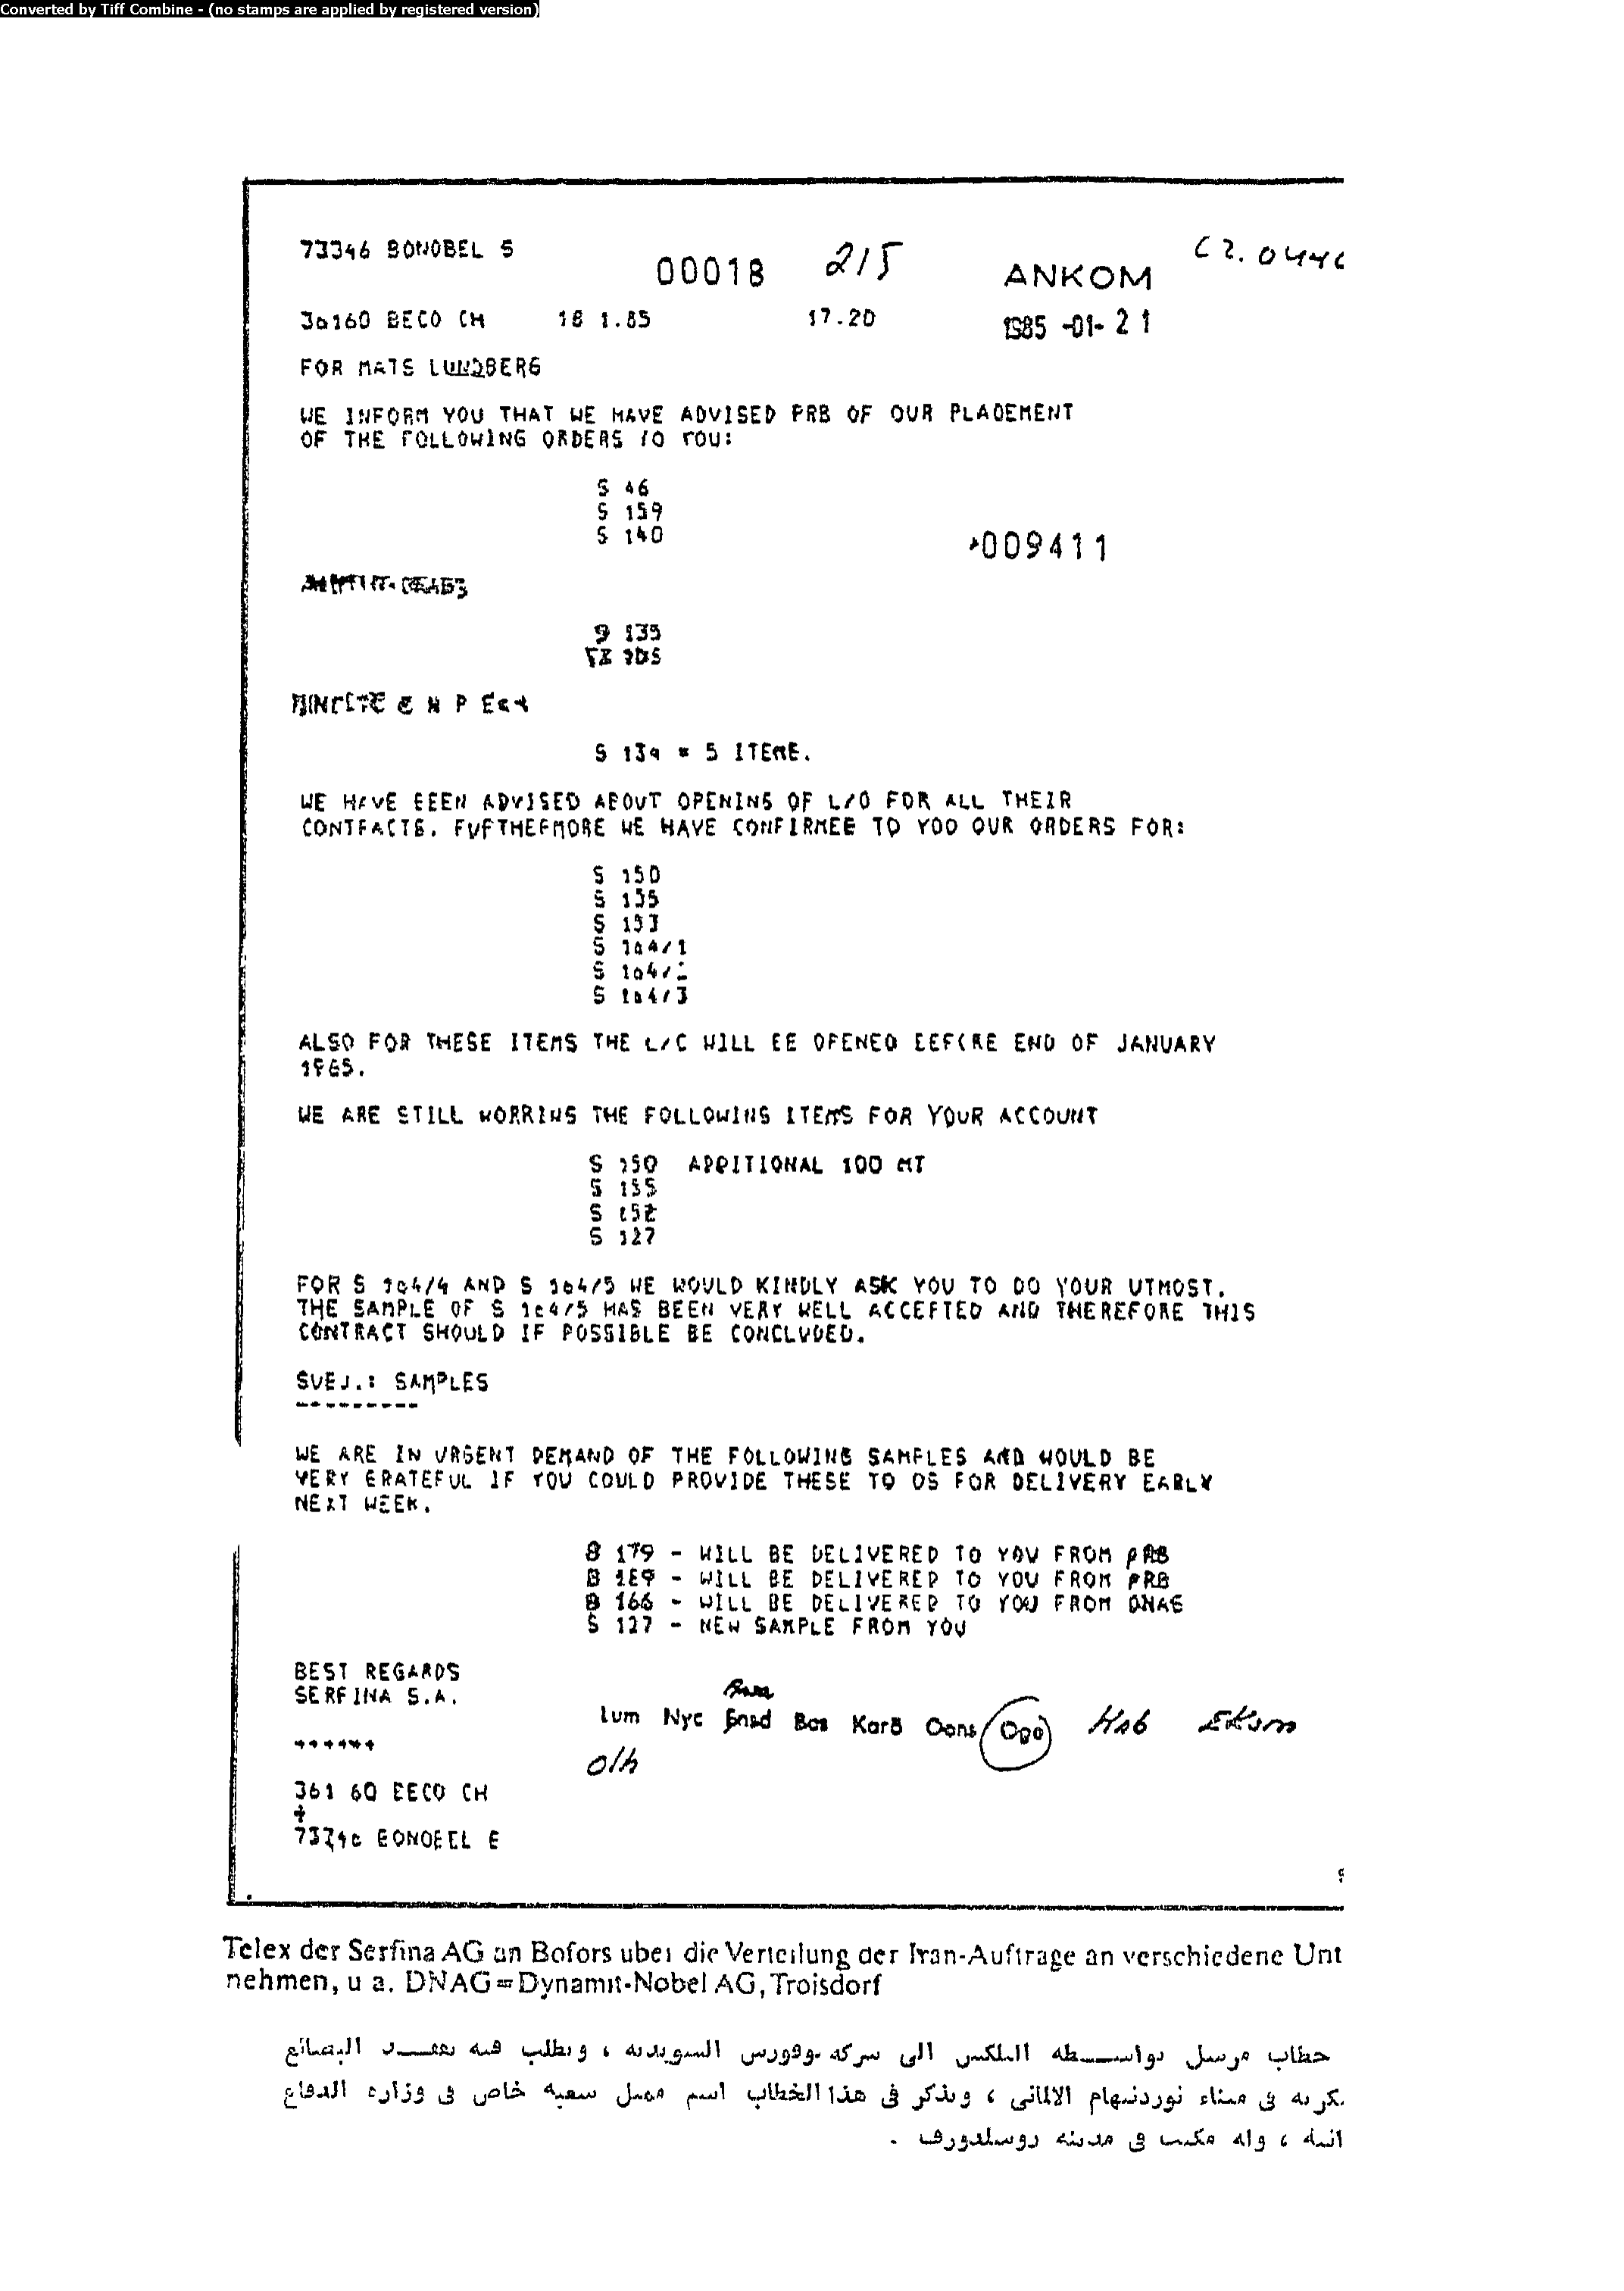 Converted by Tiff Combine - (no stamps are applied by registered version)
73346 BONOBEL S
00018 215 ANKOM
BECO CH 18 1.85 17.20 1985 -01- 21
FOR MATS LUNDBERG
WE INFORM YOU THAT WE HAVE ADVISED PRB OF OUR PLACEMENT
OF THE FOLLOWING ORDERS TO YOU:
S 46
S 159
S 140
009411
S 134 = 5 ITEMS.
WE HAVE BEEN ADVISED ABOUT OPENING OF L/C FOR ALL THEIR
CONTRACTS. FURTHERMORE WE HAVE CONFIRMED TO YOU OUR ORDERS FOR:
S 150
S 155
S 153
S 164/1
S
S 164/3
ALSO FOR THESE ITEMS THE L/C WILL BE OPENED BEFORE END OF JANUARY
1985.
WE ARE STILL WORKING THE FOLLOWING ITEMS FOR YOUR ACCOUNT
S 150 ADDITIONAL 100 MT
S 155
S 152
S 127
FOR S 164/4 AND S 164/5 WE WOULD KINDLY ASK YOU TO DO YOUR UTMOST.
THE SAMPLE OF S 164/5 HAS BEEN VERY WELL ACCEPTED AND THEREFORE THIS
CONTRACT SHOULD IF POSSIBLE BE CONCLUDED.
SUBJ.: SAMPLES
---------
WE ARE IN URGENT DEMAND OF THE FOLLOWING SAMPLES AND WOULD BE
VERY GRATEFUL IF YOU COULD PROVIDE THESE TO US FOR DELIVERY EARLY
NEXT WEEK.
S 179 - WILL BE DELIVERED TO YOU FROM PRB
S 189 - WILL BE DELIVERED TO YOU FROM PRB
S 166 - WILL BE DELIVERED TO YOU FROM DNAG
S 127 - NEW SAMPLE FROM YOU
BEST REGARDS
SERFINA S.A.
Lum Nyc Bos
++++++
36160 BECO CH
+
73346 BONOBEL S
Telex der Serfina AG an Bofors über die Verteilung der Iran-Aufträge an verschiedene Unt
nehmen, u a. DNAG=Dynamit-Nobel AG, Troisdorf
خطاب مرسل بواسطه التلكس الى شركه بوفورس السويديه ، ويطلب فيه البضائع
فى ميناء نوردنهام الالمانى ، ويذكر فى هذا الخطاب اسم خاص فى وزاره الدفاع
، وله مكتب فى مدينه دوسلدورف .